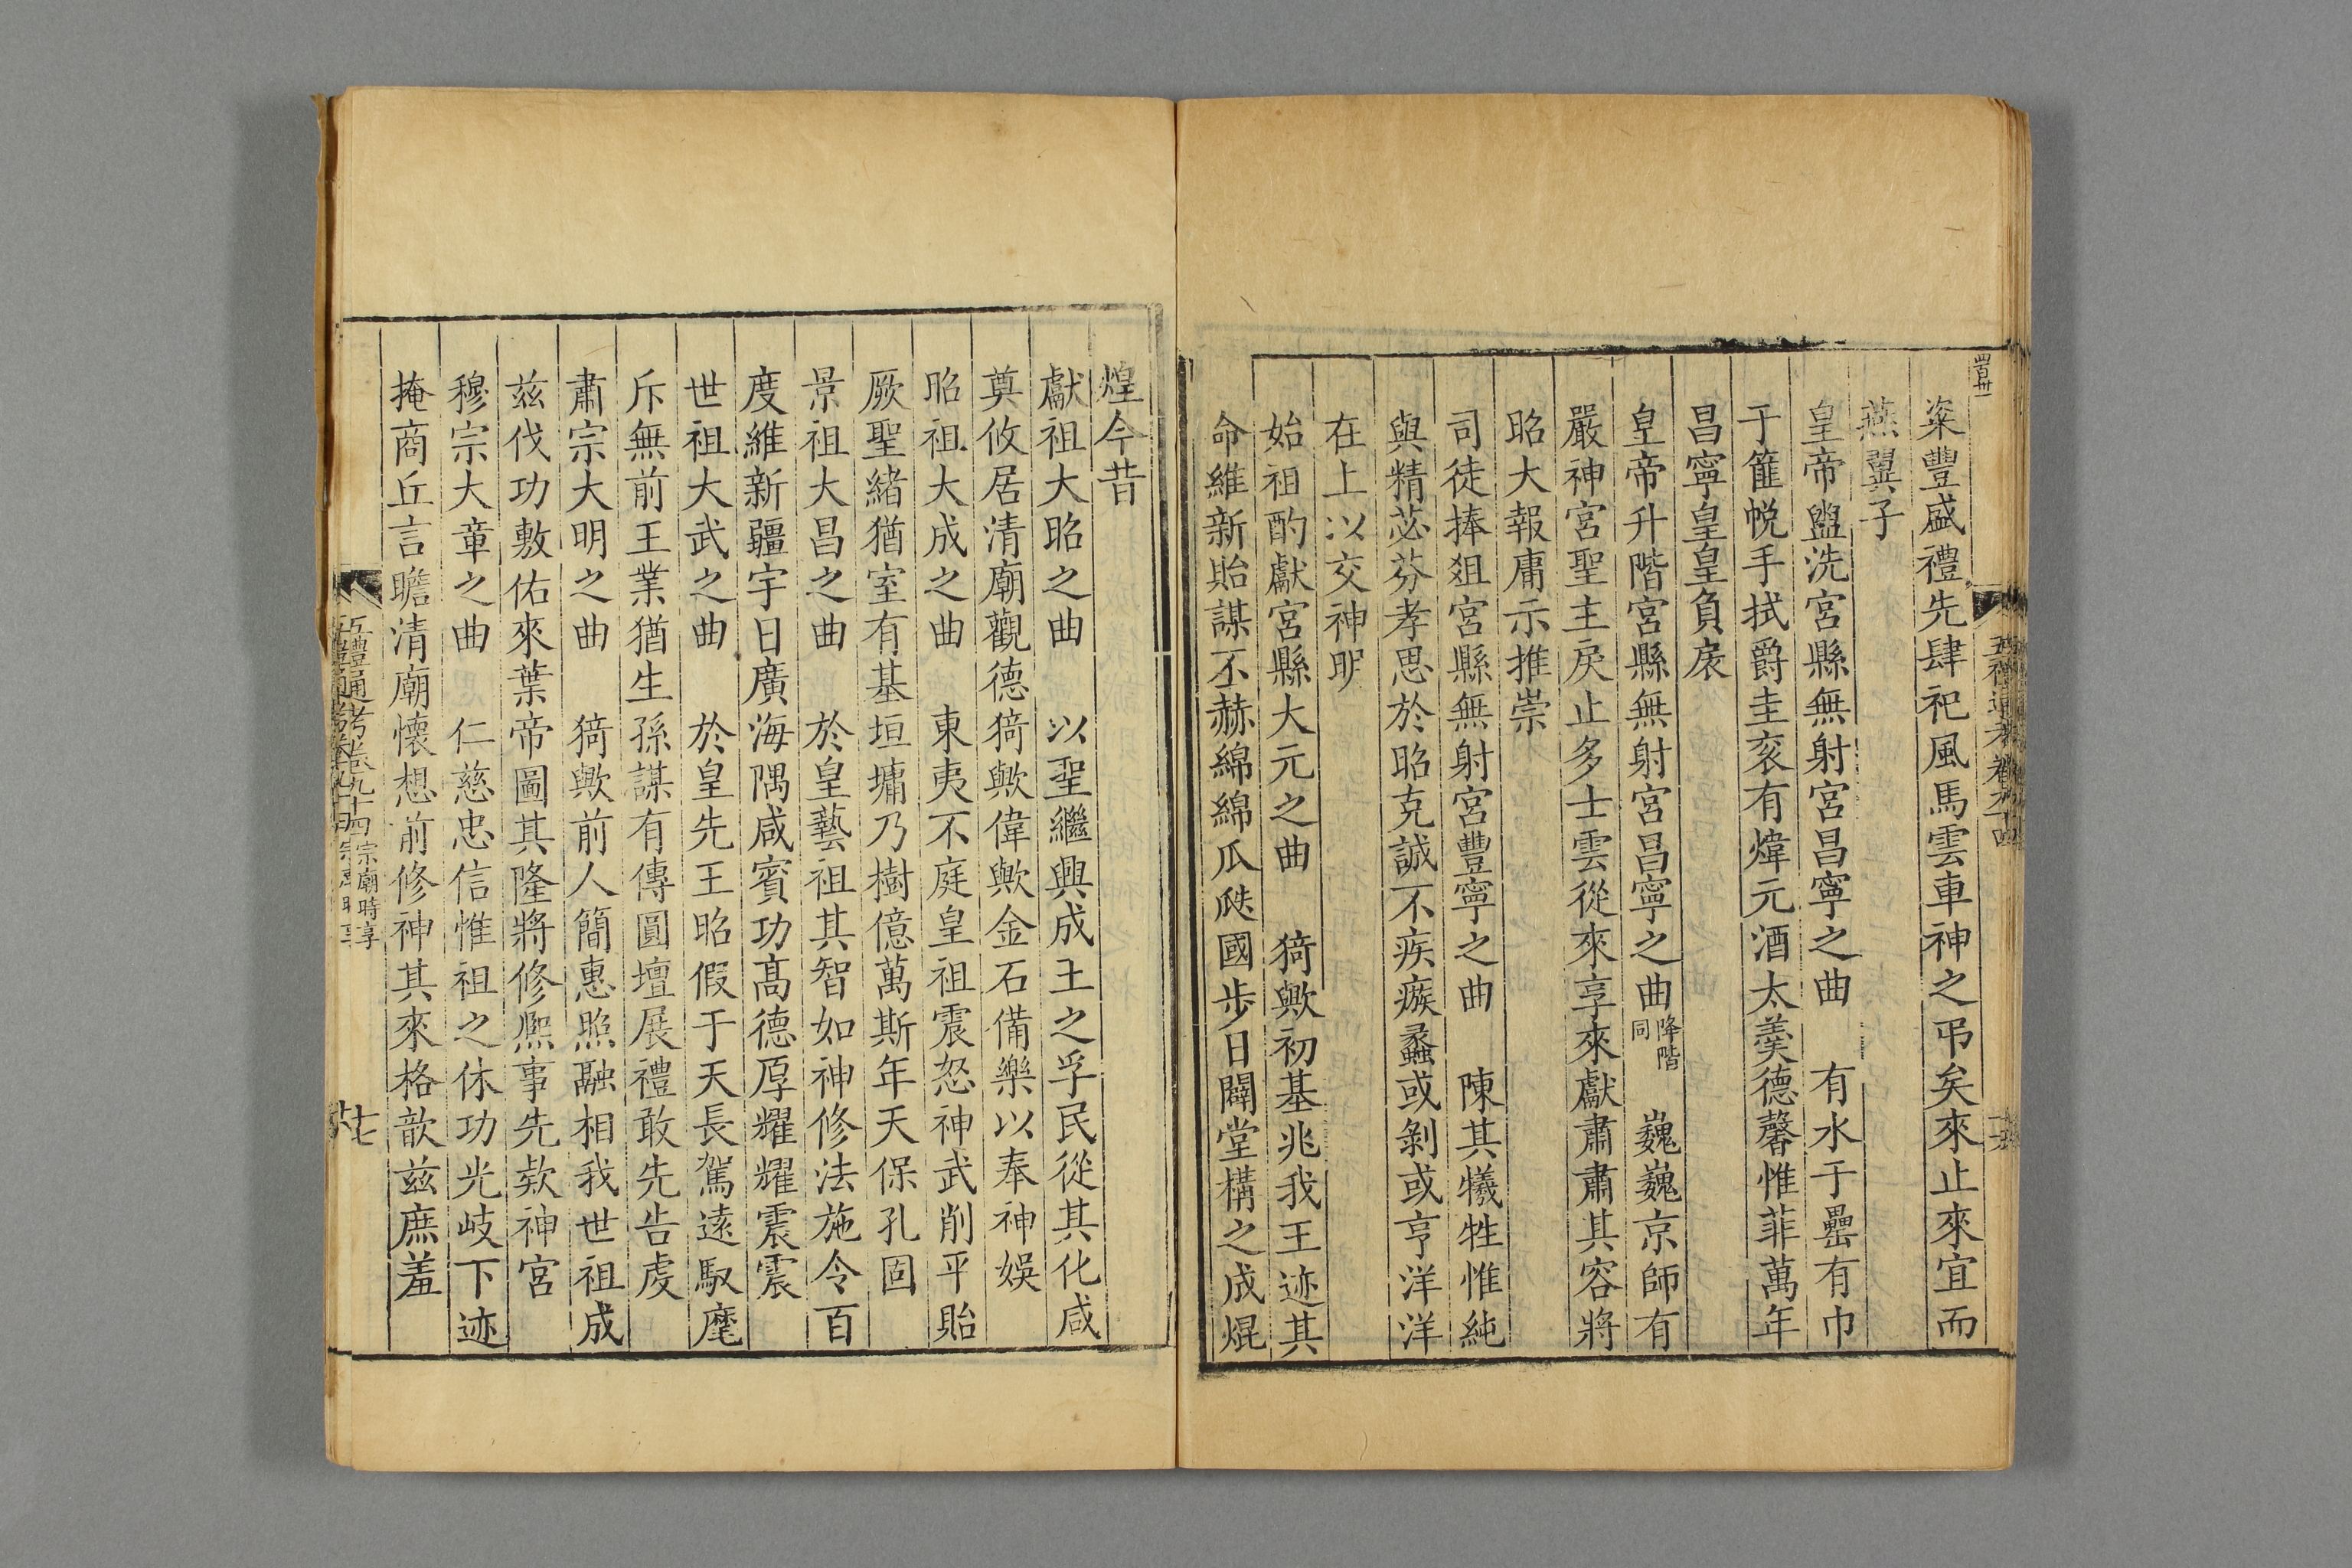 粢豐盛禮先肆祀風馬雲車神之弔矣來止來宜而
燕翼子
皇帝盥洗宮縣無射宮昌寧之曲　有水于罍有巾
于篚帨手拭爵圭衮有煒元酒太羹德馨惟菲萬年
昌寧皇皇負扆
皇帝升階宮縣無射宮昌寧之曲降階同　巍巍京師有
嚴神宮聖主戾止多士雲從來享來獻肅肅其容將
昭大報庸示推崇
司徒捧俎宮縣無射宮豐寧之曲　陳其犧牲惟純
與精苾芬孝思於昭克誠不疾瘯蠡或剝或亨洋洋
在上以交神明
始祖酌獻宮縣大元之曲　猗歟初基兆我王迹其
命維新貽謀丕赫綿綿瓜瓞國步日闢堂構之成焜
煌今昔
獻祖大昭之曲　以聖繼興成王之孚民從其化咸
奠攸居清廟觀德猗歟偉歟金石備樂以奉神娛
昭祖大成之曲　東夷不庭皇祖震怒神武削平貽
厥聖緒猶室有基垣墉乃樹億萬斯年天保孔固
景祖大昌之曲　於皇藝祖其智如神修法施令百
度維新疆宇日廣海隅咸賓功高德厚耀耀震震
世祖大武之曲　於皇先王昭假于天長駕遠馭麾
斥無前王業猶生孫謀有傳圓壇展禮敢先告虔
肅宗大明之曲　猗歟前人簡惠照融相我世祖成
茲伐功敷佑來葉帝圖其隆將修熙事先欵神宮
穆宗大章之曲　仁慈忠信惟祖之休功光岐下迹
掩商丘言瞻清廟懷想前修神其來格歆茲庶羞
五禮通考卷九十四　宗廟時享